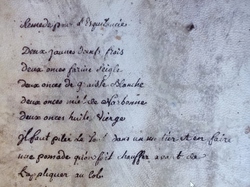 Remede pour l'Esquinancie
Deux jaunes d'œufs frais
deux onces farine seigle
deux onces de graisse blanche
deux onces miel de Narbonne
deux onces huile vierge
Il faut piler le tout dans un mortier et en faire
une pomade qu'on fait chauffer avant de
l'appliquer au Col